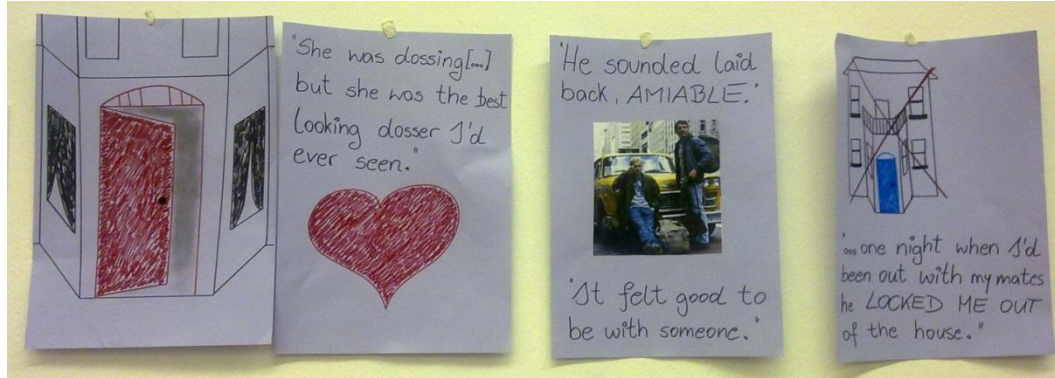 "She was dossing[...]
but she was the best
looking dosser I'd
ever seen."
'He sounded laid
back, AMIABLE.'
'It felt good to
be with someone.'
'...one night when I'd
been out with my mates
he LOCKED ME OUT
of the house."